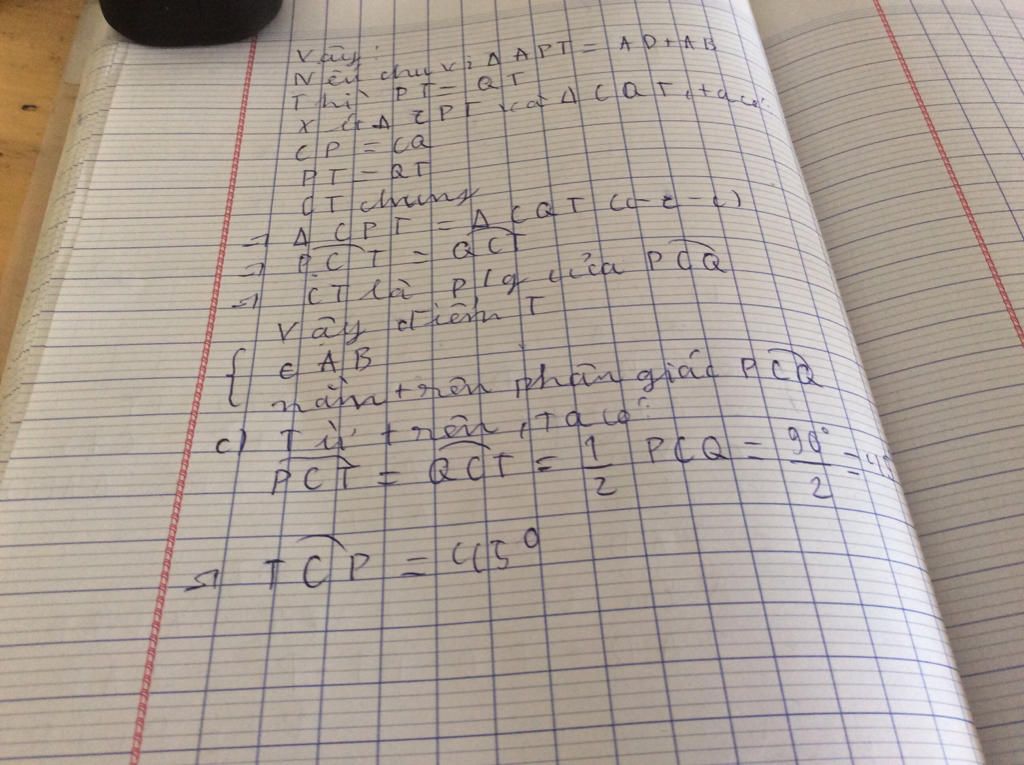 Vậy:
Nếu chu vi Δ APT = AD + AB
Thì PT = QT
Xét Δ CPT và Δ CQT, ta có:
CP = CQ
PT = QT
CT chung
=> Δ CPT = Δ CQT (c-c-c)
=> PCT = QCT
=> CT là p/g của PCQ
Vậy điểm T
{ ∈ AB
nằm trên phân giác PCQ
c) Từ trên, ta có:
PCT = QCT = 1/2 PCQ = 90°/2 = 45
=> TCP = 45°